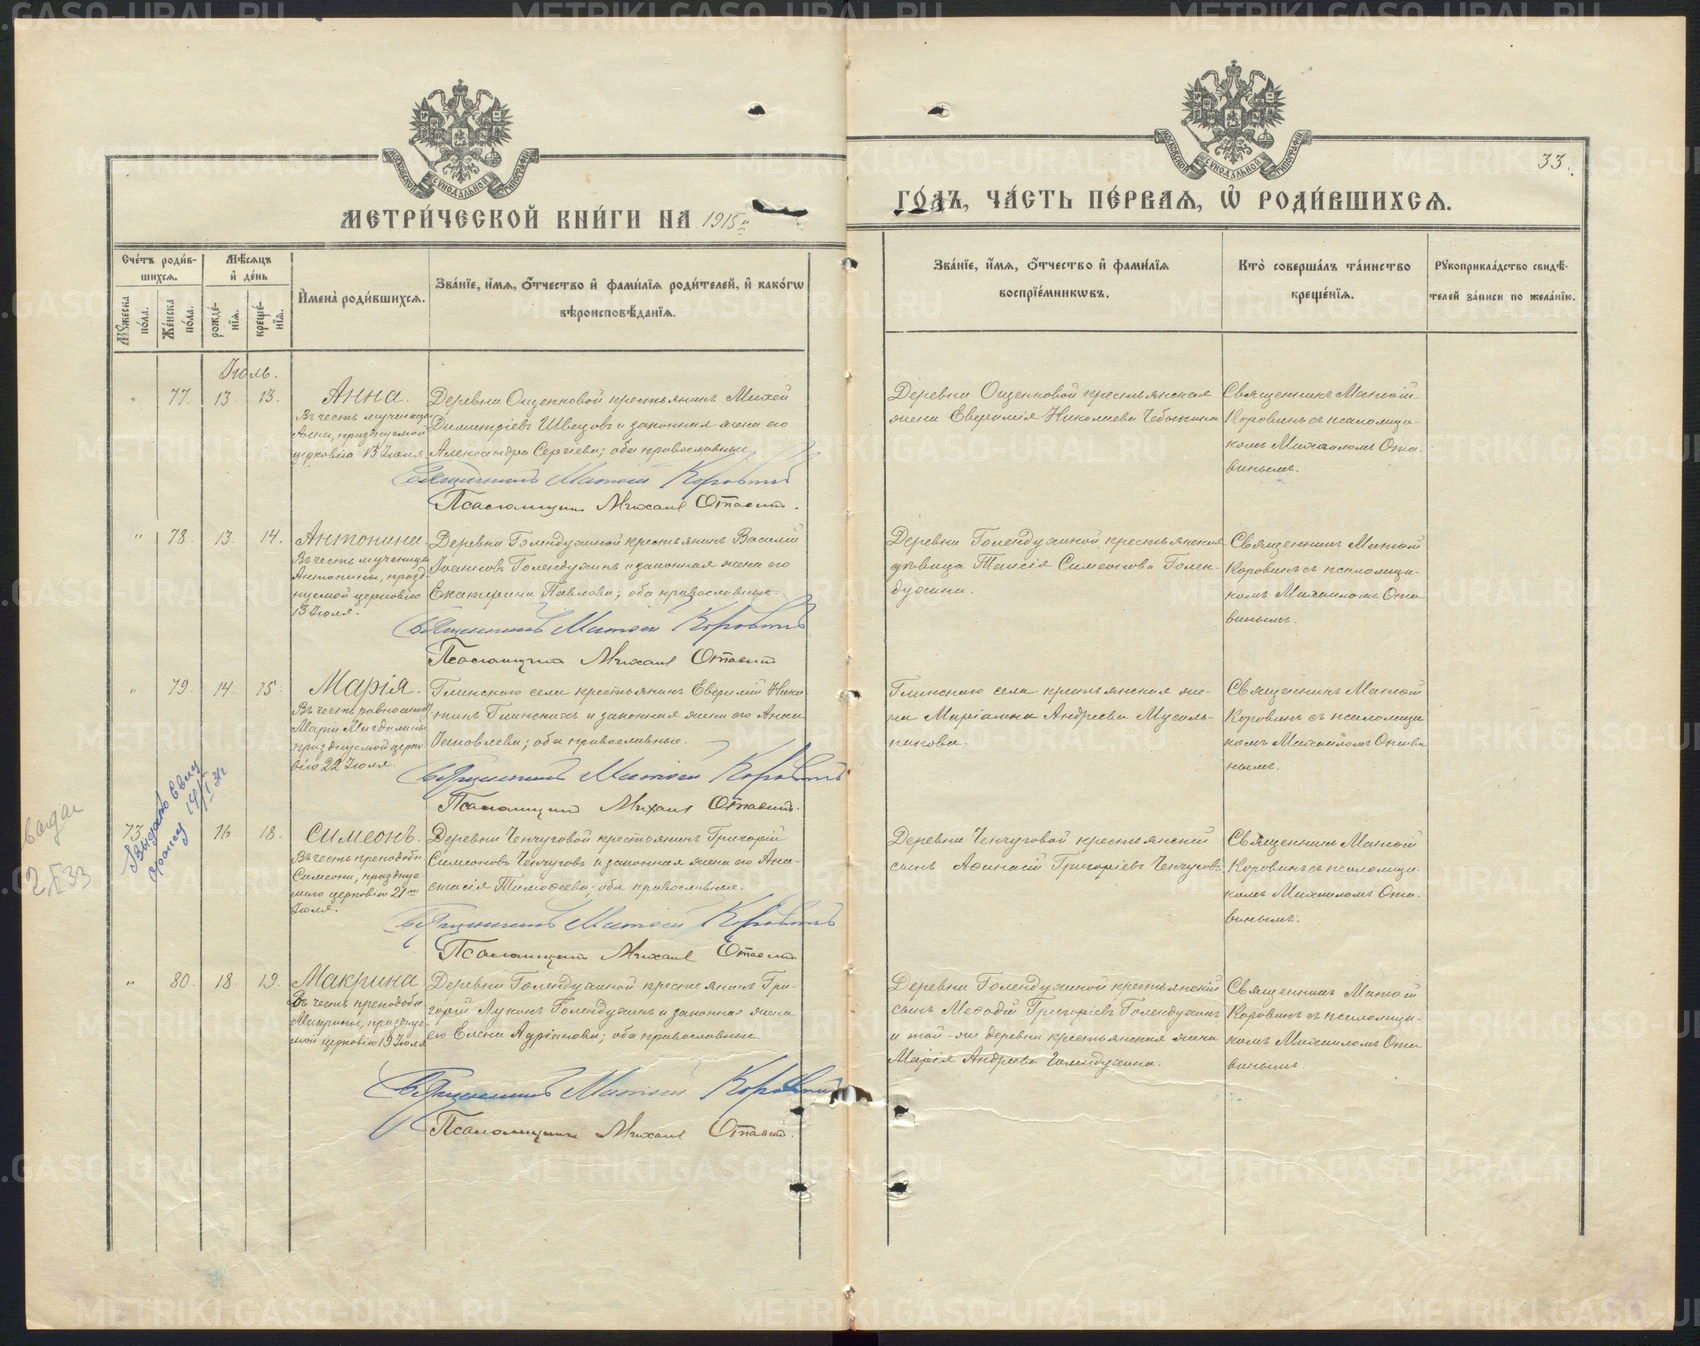 МЕТРИ́ЧЕСКОЙ КНИ́ГИ НА 1915й
ГО́ДЪ, ЧА́СТЬ ПЕ́РВАѦ, Ѡ҆ РОДИ́ВШИХСѦ.
33.
Сче́тъ роди́в-
шихсѧ.
Мѣ́сѧцъ
и҆ де́нь
Мꙋ́жеска
по́ла.
Же́нска
по́ла.
рожде́-
нїѧ.
креще́-
нїѧ.
И҆мена̀ роди́вшихсѧ.
Зва́нїе, и҆́мѧ, ѻ҆́тчество и҆ фами́лїѧ роди́телей, и҆ како́гѡ
вѣроисповѣ́данїѧ.
Зва́нїе, и҆́мѧ, ѻ҆́тчество и҆ фами́лїѧ
воспрїе́мникѡвъ.
Кто̀ соверша́лъ та́инство
креще́нїѧ.
Рꙋкоприкла́дство свидѣ́-
телей за́писи по жела́нїю.
Іюль.
" 77. 13. 13.
Анна.
Въ честь мученицы
Анны, празднуемой
церковію 13 Іюля
Деревни Ощепковой крестьянинъ Михей
Димитріевъ Швецовъ и законная жена его
Александра Сергіева; оба православные
Священникъ Матѳій Коровинъ
Псаломщикъ Михаилъ Отавинъ.
Деревни Ощепковой крестьянская
жена Евѳимія Николаева Чебыкина
Священникъ Матѳій
Коровинъ съ псаломщи-
комъ Михаиломъ Ота-
винымъ.
" 78. 13. 14.
Антонина.
Въ честь мученицы
Антонины, празд-
нуемой церковію
13 Іюля.
Деревни Голендухиной крестьянинъ Василій
Іоакимовъ Голендухинъ и законная жена его
Екатерина Павлова; оба православные.
Священникъ Матѳій Коровинъ
Псаломщикъ Михаилъ Отавинъ
Деревни Голендухиной крестьянская
дѣвица Таисія Симеонова Голен-
духина.
Священникъ Матѳій
Коровинъ съ псаломщи-
комъ Михаиломъ Ота-
винымъ.
" 79. 14. 15.
Марія.
Въ честь равноапос.
Маріи Магдалины
празднуемой церко-
вію 22 Іюля.
Глинскаго села крестьянинъ Евѳимій Ники-
тинъ Глинскихъ и законная жена его Анна
Іаковлева; оба православные.
Священникъ Матѳій Коровинъ
Псаломщикъ Михаилъ Отавинъ.
Глинскаго села крестьянская же-
на Маріамна Андреева Мусаль-
никова.
Священникъ Матѳій
Коровинъ съ псаломщи-
комъ Михаиломъ Отави-
нымъ.
выдан
2/I 33
73. 16. 18.
Симеонъ.
Въ честь преподобн.
Симеона, празднуе-
маго церковію 21го
Іюля.
Деревни Ченчуговой крестьянинъ Григорій
Симеоновъ Ченчуговъ и законная жена его Ана-
стасія Тимоѳеева; оба православные.
Священникъ Матѳій Коровинъ
Псаломщикъ Михаилъ Отавинъ
Деревни Ченчуговой крестьянскій
сынъ Аѳанасій Григоріевъ Ченчуговъ
Священникъ Матѳій
Коровинъ съ псаломщи-
комъ Михаиломъ Ота-
винымъ.
" 80. 18. 19.
Макрина
Въ честь преподобн.
Макрины, празднуе-
мой церковію 19 Іюля
Деревни Голендухиной крестьянинъ Гри-
горій Лукинъ Голендухинъ и законная жена
его Елена Адріанова; оба православные
Священникъ Матѳій Коровинъ
Псаломщикъ Михаилъ Отавинъ.
Деревни Голендухиной крестьянскій
сынъ Меѳодій Григоріевъ Голендухинъ
и той-же деревни крестьянская жена
Марія Андреева Голендухина.
Священникъ Матѳій
Коровинъ съ псаломщи-
комъ Михаиломъ Ота-
винымъ.
METRIKI.GASO-URAL.RU